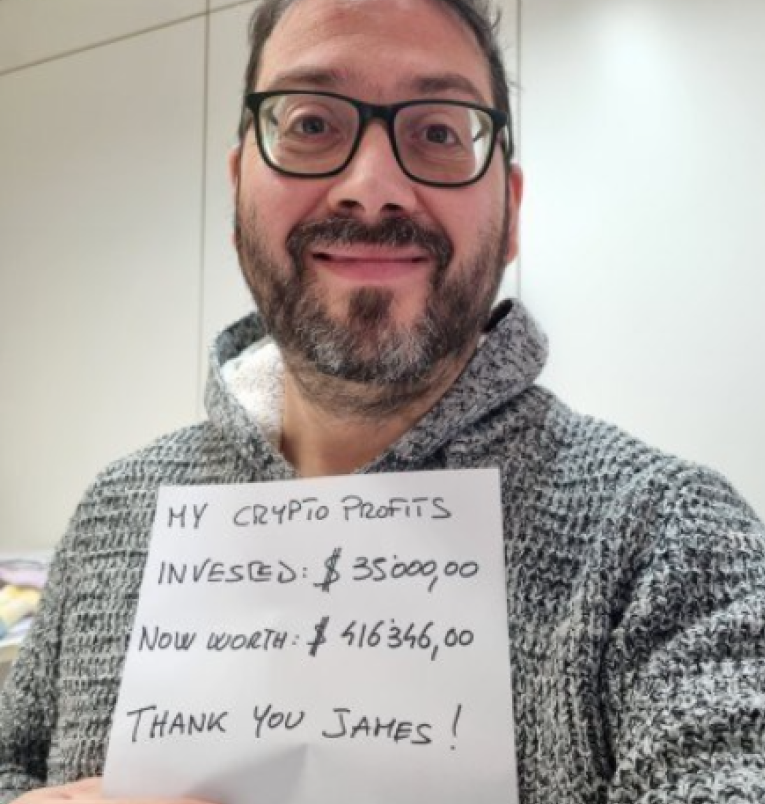 MY CRYPTO PROFITS
INVESTED: $ 35'000,00
NOW WORTH: $ 416'346,00
THANK YOU JAMES!